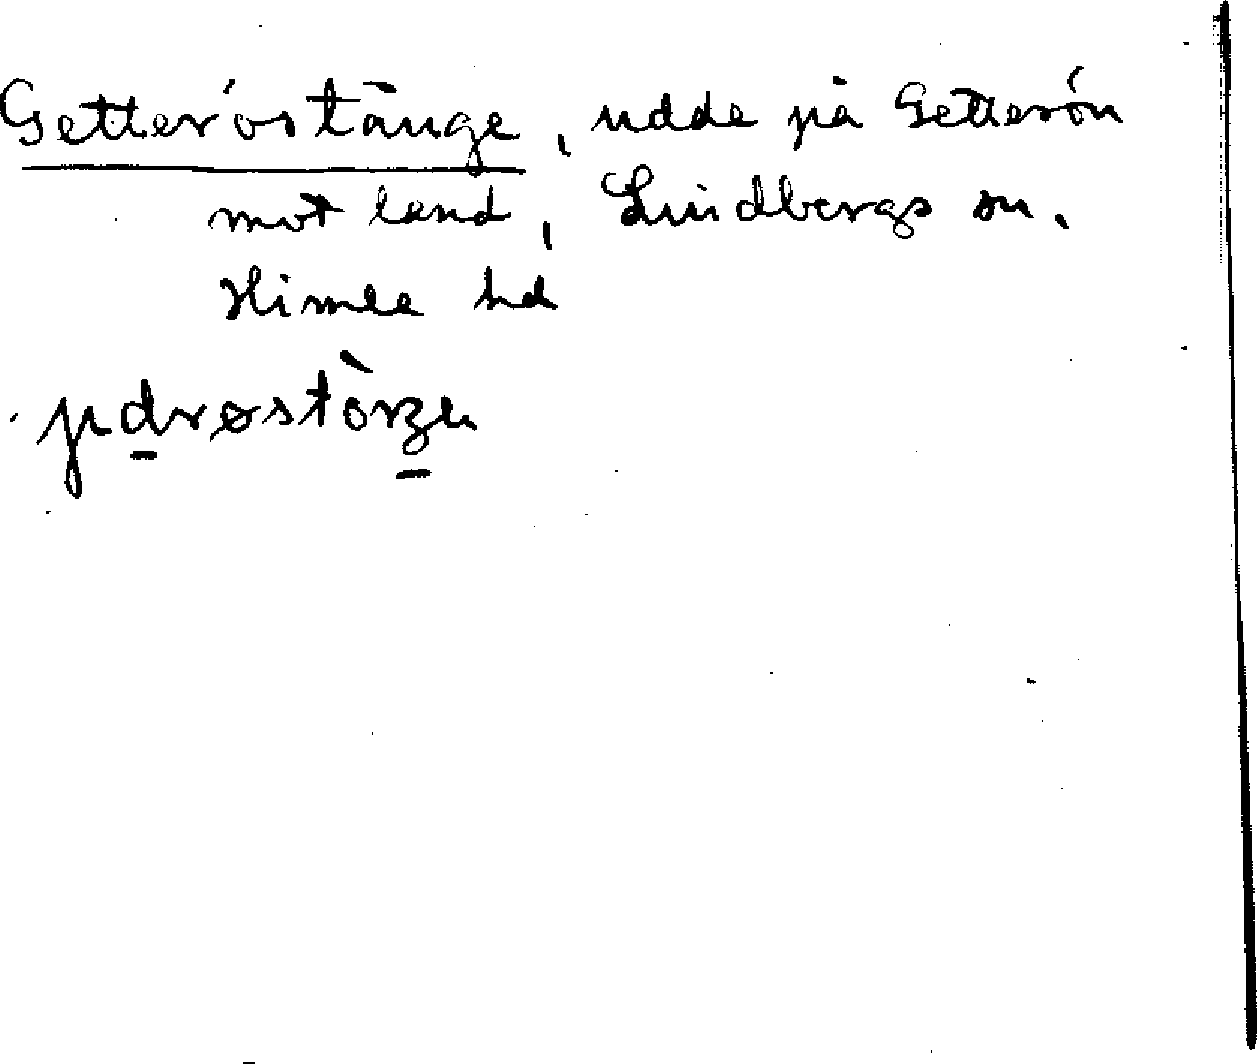 Getteröstånge, udde på Getterön
mot land, Lindbergs sn,
Himle hd